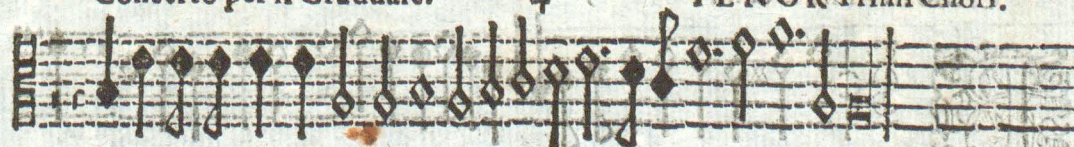 Concerto per il Graduale. 4 TENOR Primi Chori.